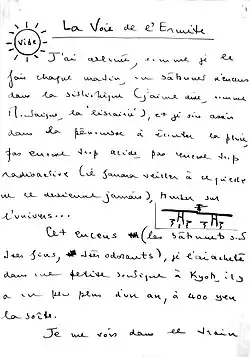 La Voie de l'Ermite
Vide
J'ai allumé, comme je le
fais chaque matin, un bâtonnet d'encens
dans la bibliothèque (j'aime dire, comme
, la "librairie"), et je suis assis
dans la pénombre à écouter la pluie,
pas encore trop acide, pas encore trop
radioactive (il faudra veiller à ce qu'elle
ne le devienne jamais), tomber sur
l'univers...
Cet encens (les bâtonnets sont
très fins, très odorants), je l'ai acheté
dans une petite boutique à Kyoto, il y
a un peu plus d'un an, à 400 yen
la boîte.
Je me vois dans le train